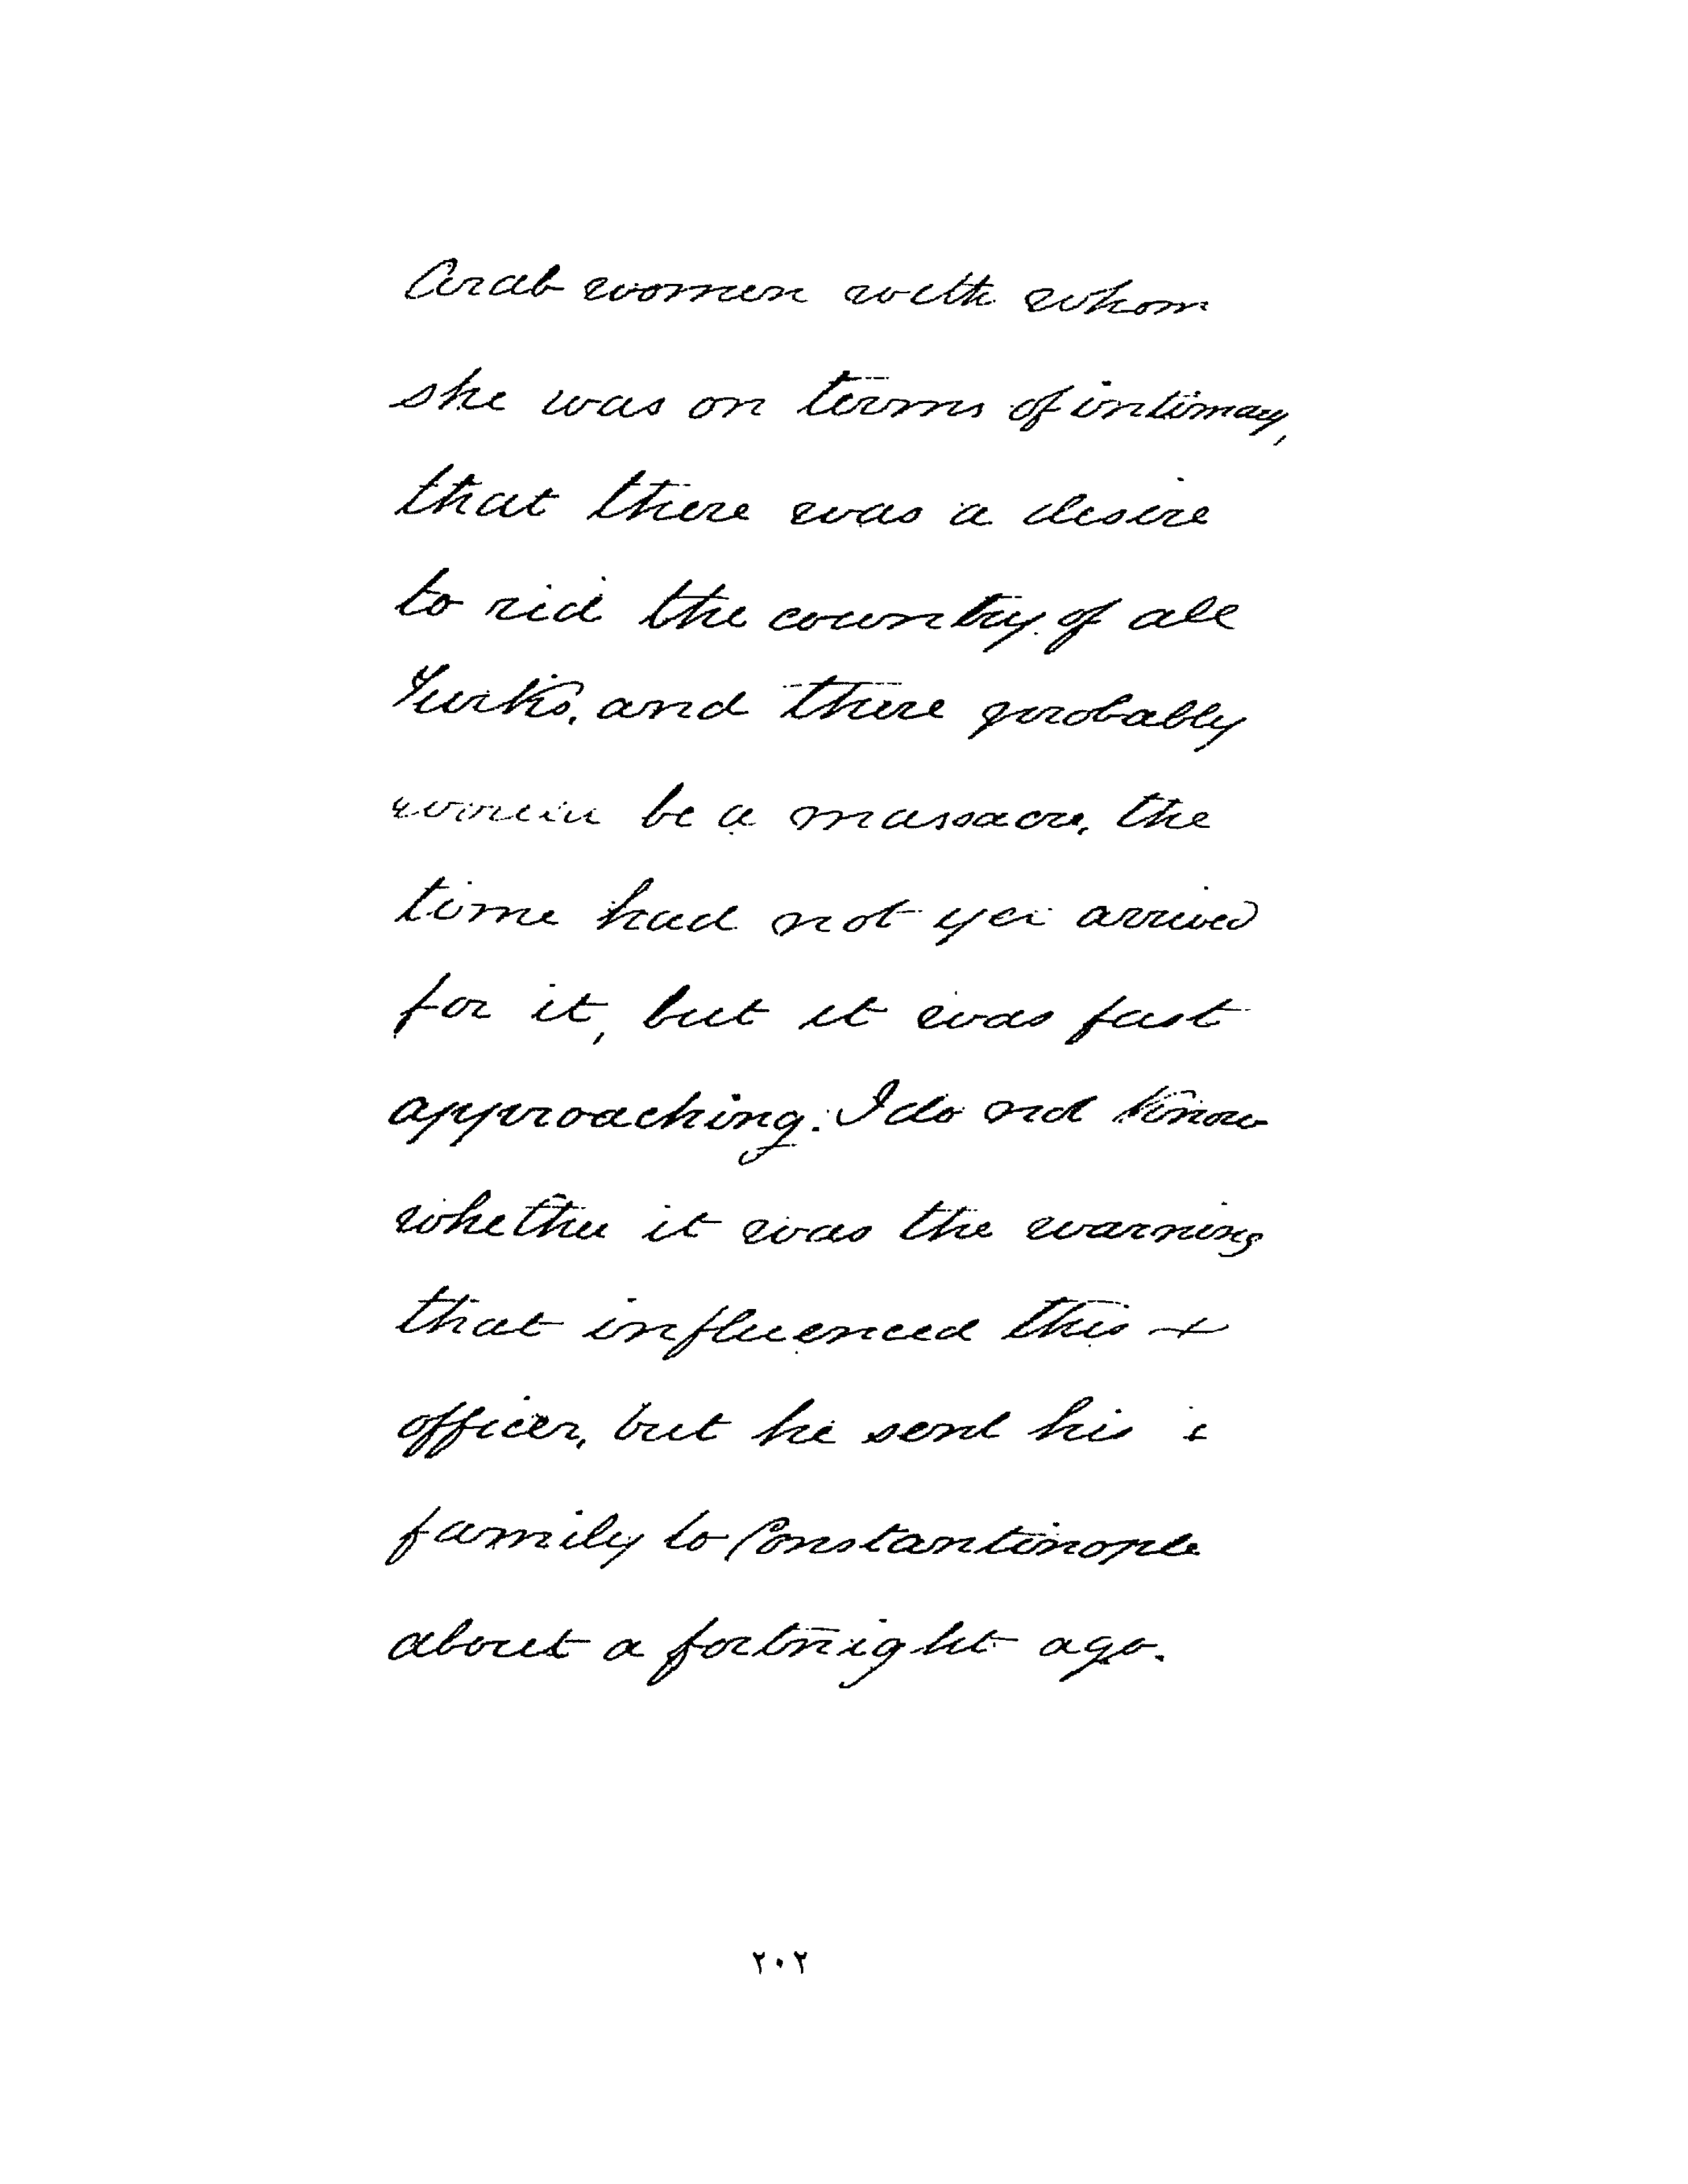 Arab women with whom
she was on terms of intimacy,
that there was a desire
to rid the country of all
Turks, and there probably
be a massacre, the
time had not yet arrived
for it, but it was fast
approaching. I do not know
whether it was the warning
that influenced this
officer, but he sent his
family to Constantinople
about a fortnight ago.
٢٠٢